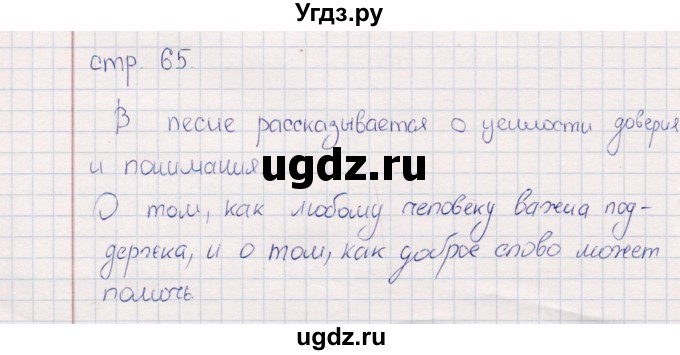 Угдз.ру
стр. 65.
В песне рассказывается о ценности доверия
и понимания
ugdz.ru
О том, как любому человеку важна под-
держка, и о том, как доброе слово может
помочь
ugdz.ru